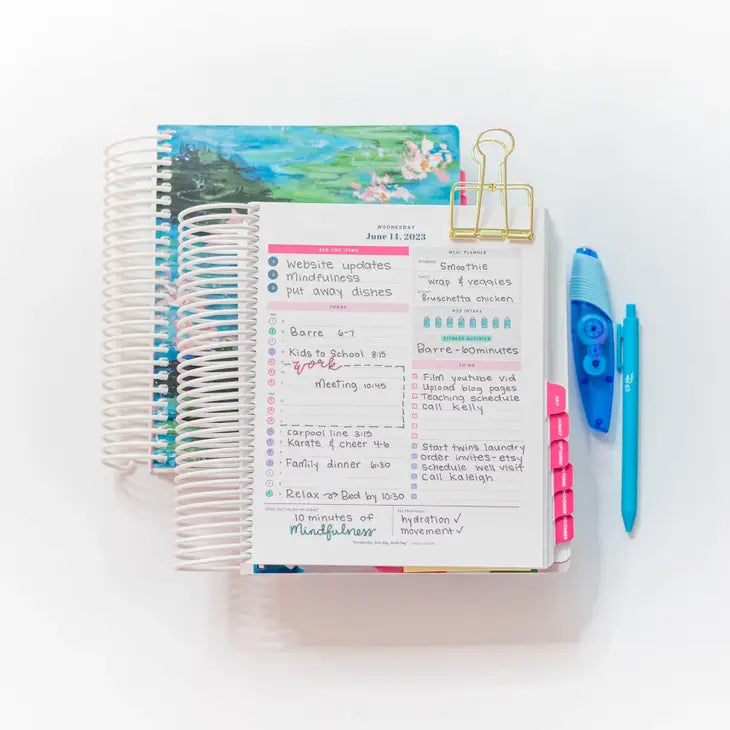 WEDNESDAY
June 14, 2023
RED LINE ITEMS
1 Website updates
2 Mindfulness
3 put away dishes
TODAY
Barre 6-7
Kids to School 8:15
work
Meeting 10:45
carpool line 3:15
Karate & cheer 4-6
Family dinner 6:30
Relax → Bed by 10:30
10 minutes of
Mindfulness
MEAL PLANNER
Smoothie
wrap & veggies
Bruschetta chicken
H2O INTAKE
FITNESS ACTIVITY
Barre - 60 minutes
TO DO
Film youtube vid
Upload blog pages
Teaching schedule
Call Kelly
Start twins laundry
order invites - etsy
schedule well visit
Call Kaleigh
hydration ✓
movement ✓
JULY
AUGUST
SEPTEMBER
OCTOBER
NOVEMBER
DECEMBER